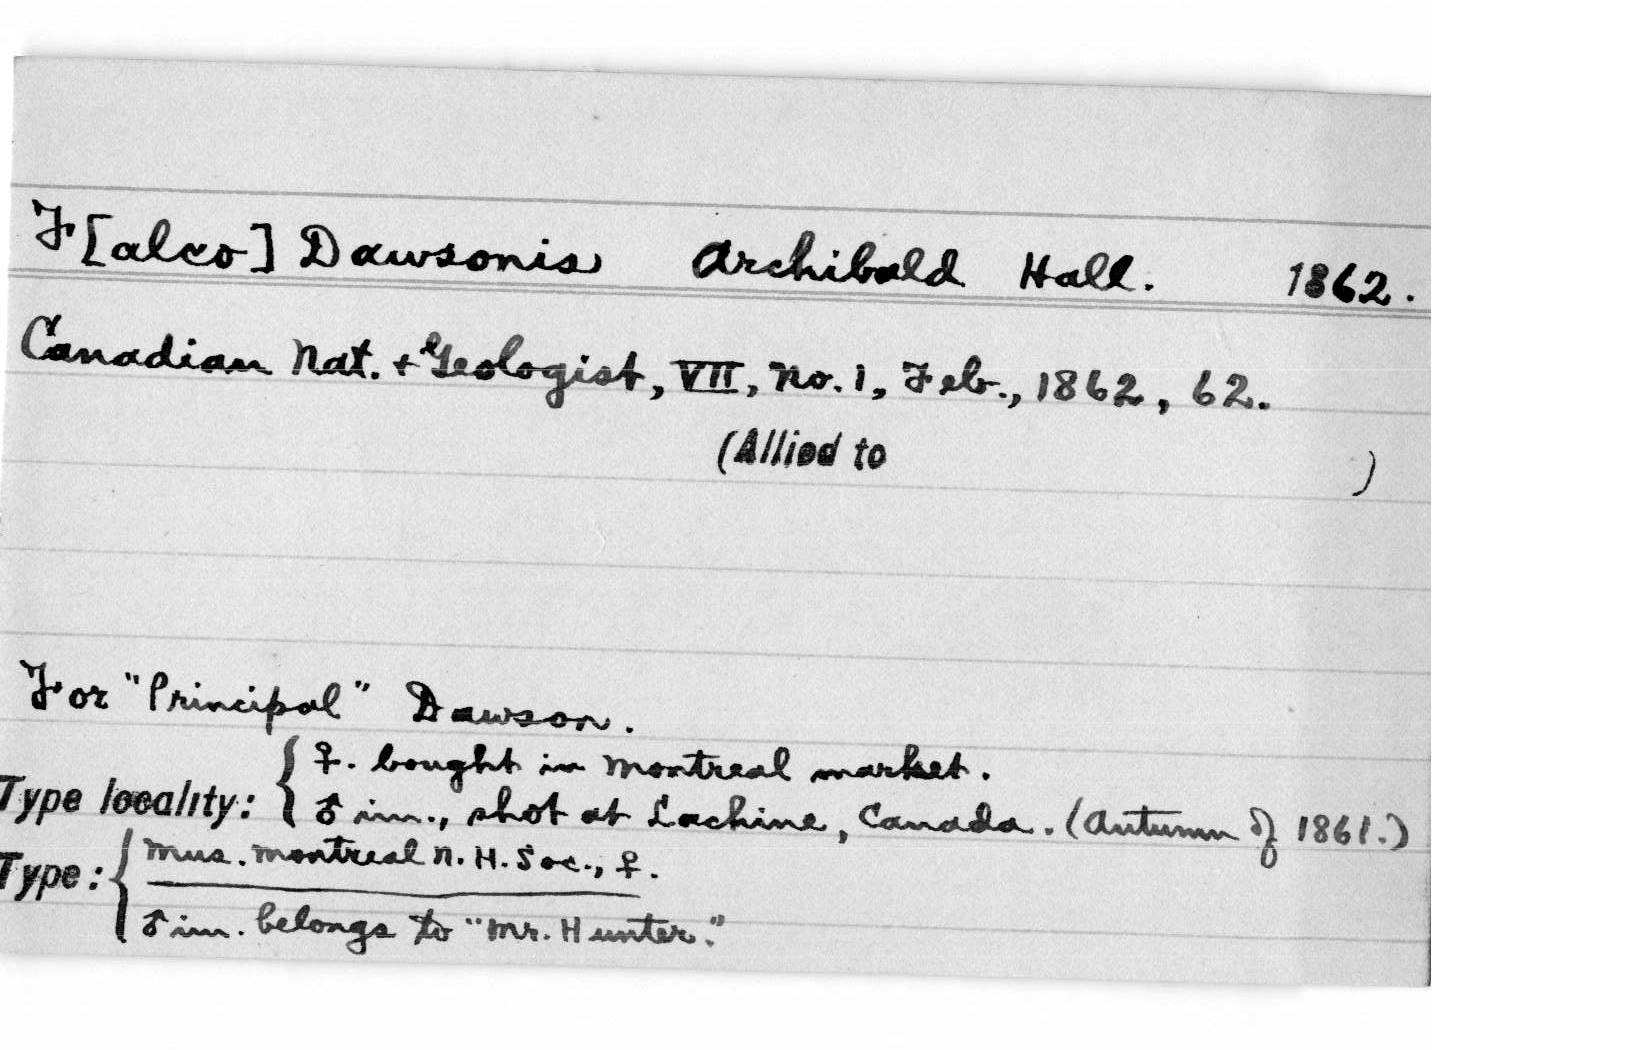 F[alco] Dawsonis Archibald Hall. 1862.
Canadian Nat. + Geologist, VII, No. 1, Feb., 1862, 62.
(Allied to )
For "Principal" Dawson.
Type locality: { ♀. bought in Montreal market.
♂ im., shot at Lachine, Canada. (Autumn of 1861.)
Type: { Mus. Montreal N. H. Soc., ♀.
♂ im. belongs to "Mr. Hunter."